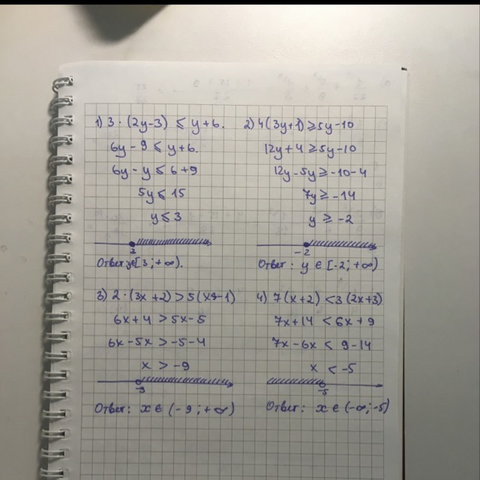 1) 3 · (2y-3) ≤ y+6.
6y - 9 ≤ y+6.
6y - y ≤ 6+9
5y ≤ 15
y ≤ 3
3
Ответ: y∈[3; +∞).
2) 4(3y+1) ≥ 5y-10
12y+4 ≥ 5y-10
12y-5y ≥ -10-4
7y ≥ -14
y ≥ -2
-2
Ответ: y ∈ [-2; +∞)
3) 2 · (3x+2) > 5(x-1)
6x+4 > 5x-5
6x-5x > -5-4
x > -9
-9
Ответ: x ∈ (-9; +∞)
4) 7(x+2) < 3(2x+3)
7x+14 < 6x+9
7x-6x < 9-14
x < -5
-5
Ответ: x ∈ (-∞; -5)